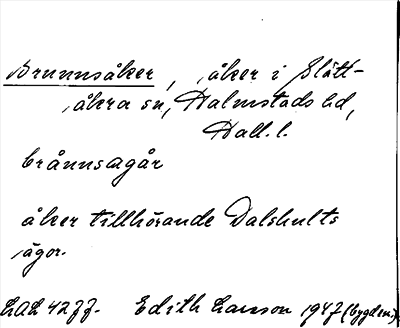 Brunnsåker, åker i Slätt-
åkra sn, Halmstads hd,
Hall. l.
brånnsagår
åker tillhörande Dalshults
ägor.
LAL 4277. Edith Larsson 1947 (bygden).